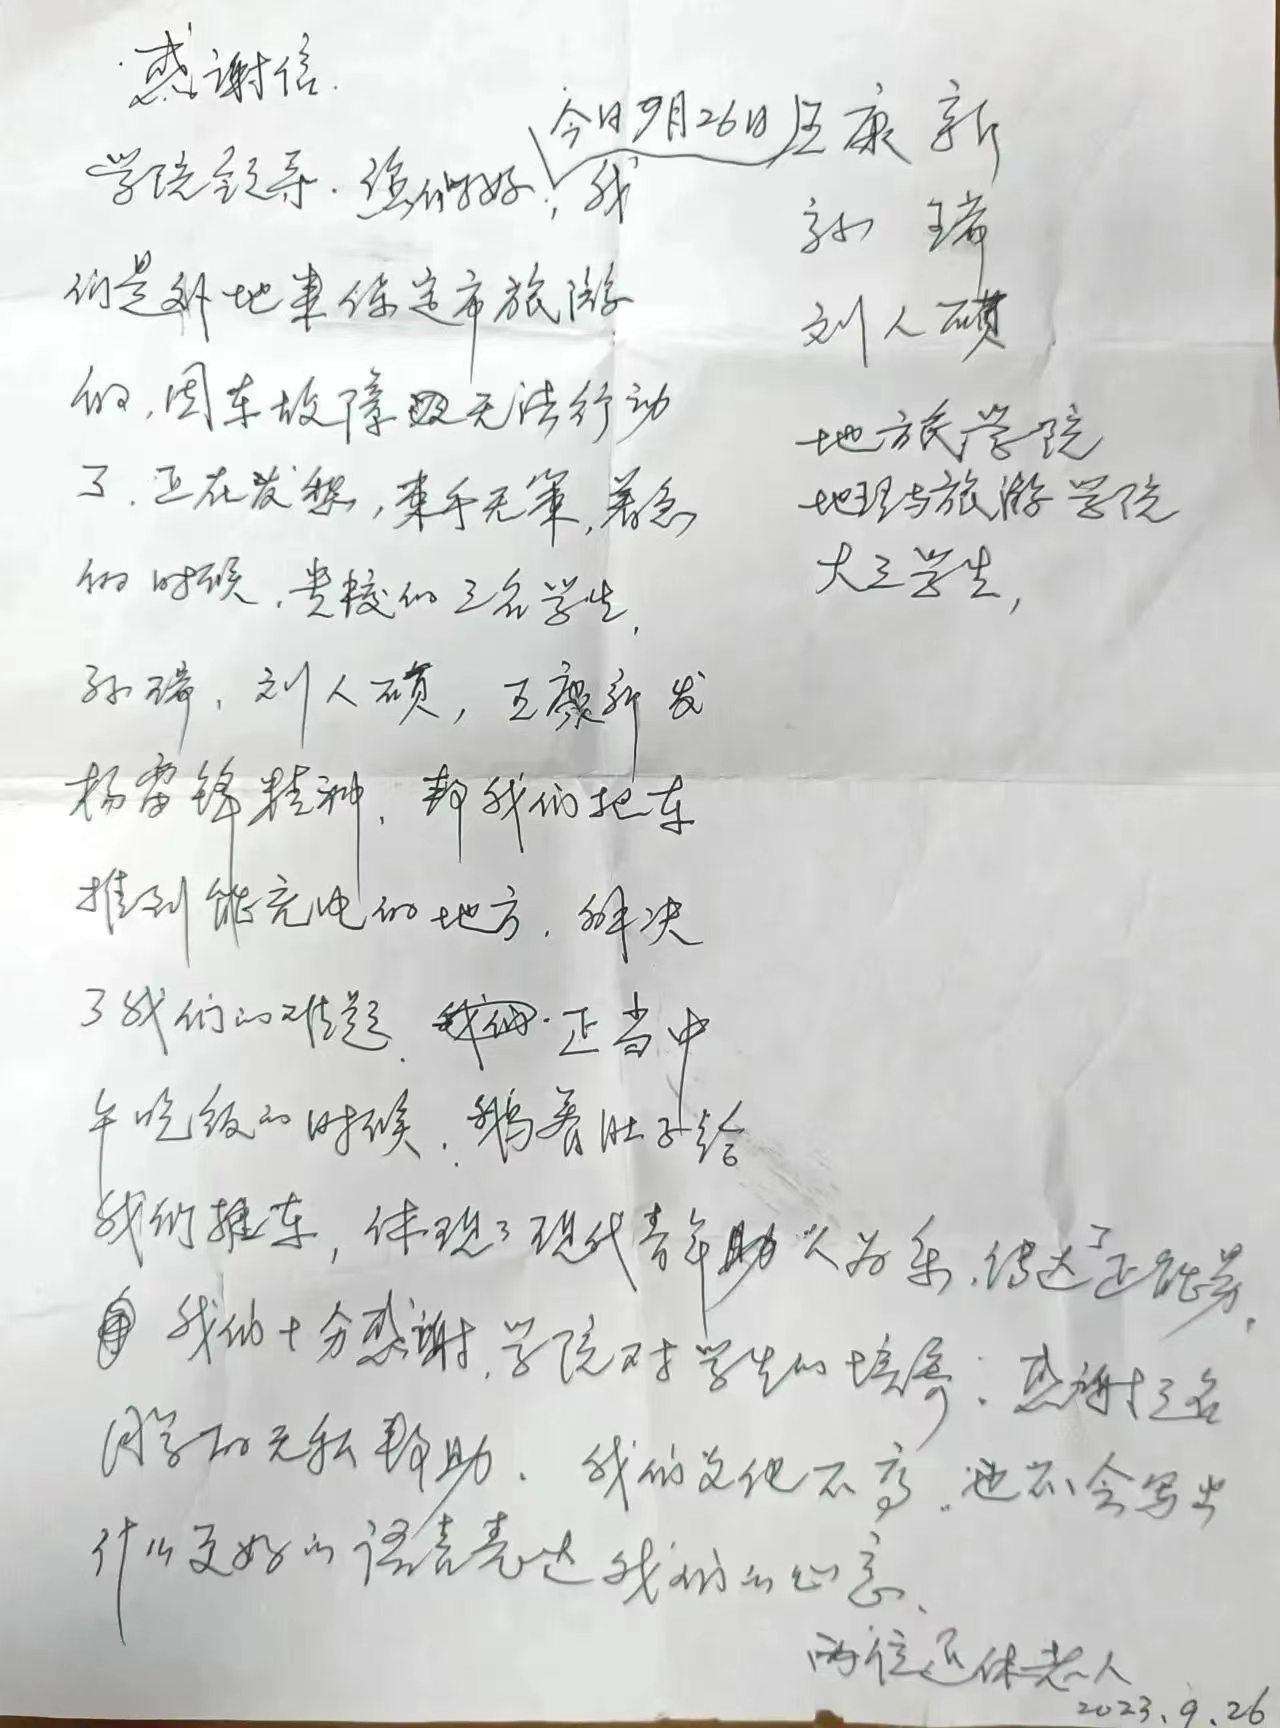 感谢信
学院领导.您们好,今日9月26日我
们是外地来保定市旅游
的,因车故障 无法行动
了.正在发愁,束手无策,着急
的时候,贵校的三名学生,
孙瑞,刘人硕,王康新发
扬雷锋精神,帮我们把车
推到能充电的地方.解决
了我们的难题.正当中
午吃饭的时候,饿着肚子给
我们推车,体现了现代青年助人为乐,传达了正能量,
我们十分感谢,学院对学生的培养;感谢三名
同学的无私帮助.我们文化不高,也不会写出
什么更好的语言表达我们的心意、
两位退休老人
2023.9.26
王康新
孙瑞
刘人硕
地旅学院
地理与旅游学院
大三学生,